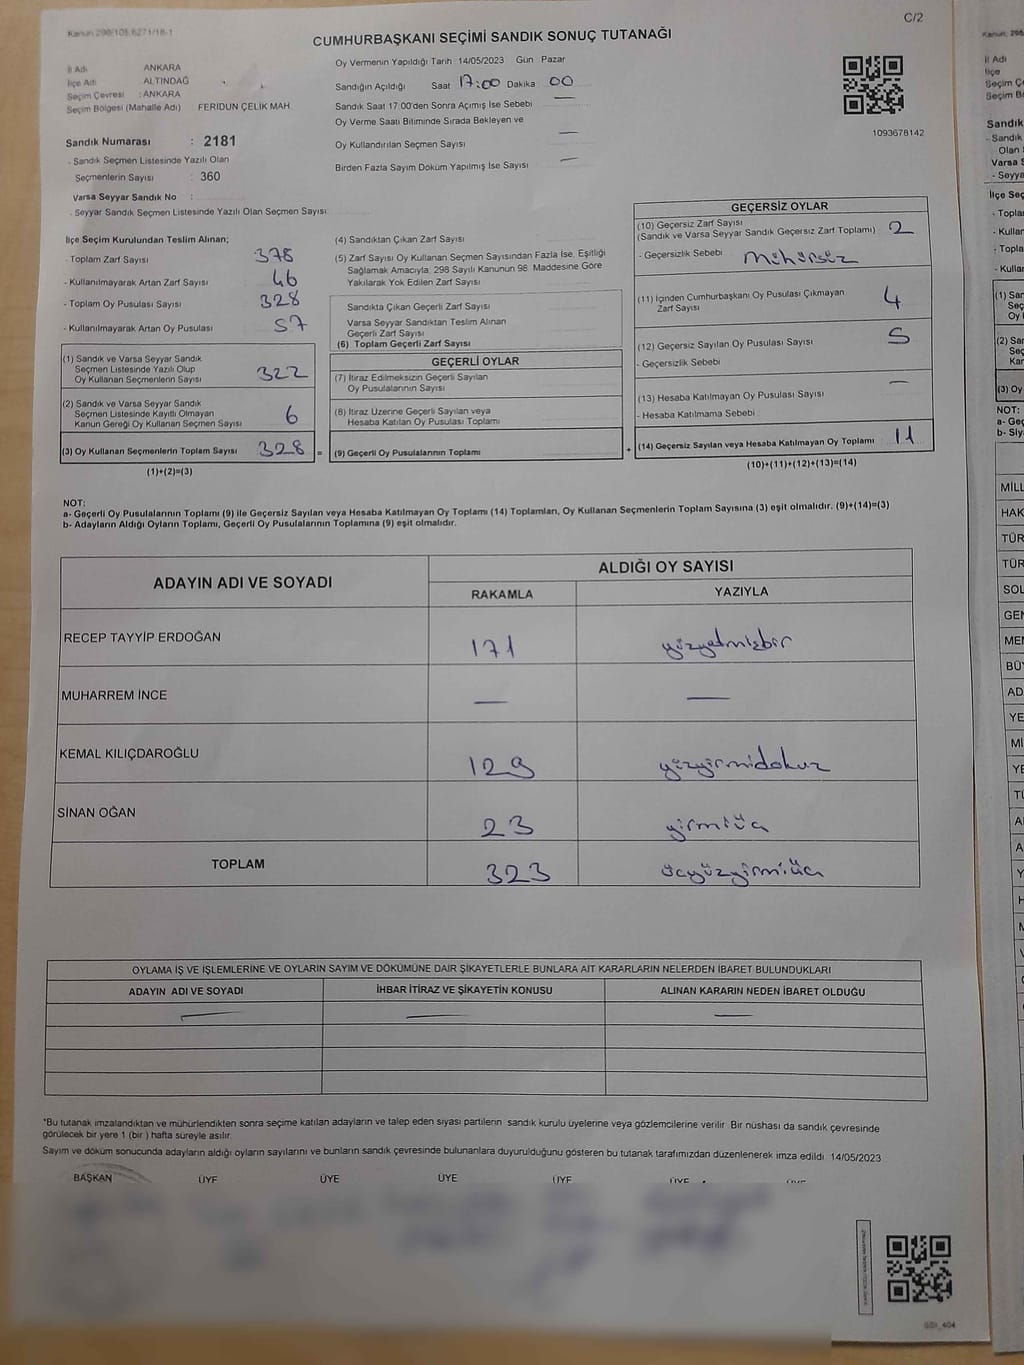 Kanun 298/105,6271/18-1
C/2
CUMHURBAŞKANI SEÇİMİ SANDIK SONUÇ TUTANAĞI
İl Adı ANKARA
İlçe Adı ALTINDAĞ
Seçim Çevresi : ANKARA
Seçim Bölgesi (Mahalle Adı) FERİDUN ÇELİK MAH.
Sandık Numarası : 2181
- Sandık Seçmen Listesinde Yazılı Olan
Seçmenlerin Sayısı : 360
Varsa Seyyar Sandık No :
- Seyyar Sandık Seçmen Listesinde Yazılı Olan Seçmen Sayısı
Oy Vermenin Yapıldığı Tarih : 14/05/2023 Gün Pazar
Sandığın Açıldığı Saat 17:00 Dakika 00
Sandık Saat 17.00'den Sonra Açımış İse Sebebi —
Oy Verme Saati Bitiminde Sırada Bekleyen ve
Oy Kullandırılan Seçmen Sayısı —
Birden Fazla Sayım Döküm Yapılmış İse Sayısı —
1093678142
İlçe Seçim Kurulundan Teslim Alınan;
- Toplam Zarf Sayısı 378
- Kullanılmayarak Artan Zarf Sayısı 46
- Toplam Oy Pusulası Sayısı 328
- Kullanılmayarak Artan Oy Pusulası 57
(1) Sandık ve Varsa Seyyar Sandık
Seçmen Listesinde Yazılı Olup
Oy Kullanan Seçmenlerin Sayısı 322
(2) Sandık ve Varsa Seyyar Sandık
Seçmen Listesinde Kayıtlı Olmayan
Kanun Gereği Oy Kullanan Seçmen Sayısı 6
(3) Oy Kullanan Seçmenlerin Toplam Sayısı 328 =
(1)+(2)=(3)
(4) Sandıktan Çıkan Zarf Sayısı
(5) Zarf Sayısı Oy Kullanan Seçmen Sayısından Fazla İse, Eşitliği
Sağlamak Amacıyla; 298 Sayılı Kanunun 98. Maddesine Göre
Yakılarak Yok Edilen Zarf Sayısı
Sandıkta Çıkan Geçerli Zarf Sayısı
Varsa Seyyar Sandıktan Teslim Alınan
Geçerli Zarf Sayısı
(6) Toplam Geçerli Zarf Sayısı
GEÇERLİ OYLAR
(7) İtiraz Edilmeksizin Geçerli Sayılan
Oy Pusulalarının Sayısı
(8) İtiraz Üzerine Geçerli Sayılan veya
Hesaba Katılan Oy Pusulası Toplamı
(9) Geçerli Oy Pusulalarının Toplamı +
GEÇERSİZ OYLAR
(10) Geçersiz Zarf Sayısı
(Sandık ve Varsa Seyyar Sandık Geçersiz Zarf Toplamı) 2
- Geçersizlik Sebebi Mühürsüz
(11) İçinden Cumhurbaşkanı Oy Pusulası Çıkmayan
Zarf Sayısı 4
(12) Geçersiz Sayılan Oy Pusulası Sayısı 5
- Geçersizlik Sebebi
(13) Hesaba Katılmayan Oy Pusulası Sayısı —
- Hesaba Katılmama Sebebi
(14) Geçersiz Sayılan veya Hesaba Katılmayan Oy Toplamı 11
(10)+(11)+(12)+(13)=(14)
NOT:
a- Geçerli Oy Pusulalarının Toplamı (9) ile Geçersiz Sayılan veya Hesaba Katılmayan Oy Toplamı (14) Toplamları, Oy Kullanan Seçmenlerin Toplam Sayısına (3) eşit olmalıdır. (9)+(14)=(3)
b- Adayların Aldığı Oyların Toplamı, Geçerli Oy Pusulalarının Toplamına (9) eşit olmalıdır.
ADAYIN ADI VE SOYADI ALDIĞI OY SAYISI
RAKAMLA YAZIYLA
RECEP TAYYİP ERDOĞAN 171 yüzyetmişbir
MUHARREM İNCE — —
KEMAL KILIÇDAROĞLU 129 yüzyirmidokuz
SİNAN OĞAN 23 yirmiüç
TOPLAM 323 üçyüzyirmiüç
OYLAMA İŞ VE İŞLEMLERİNE VE OYLARIN SAYIM VE DÖKÜMÜNE DAİR ŞİKAYETLERLE BUNLARA AİT KARARLARIN NELERDEN İBARET BULUNDUKLARI
ADAYIN ADI VE SOYADI İHBAR İTİRAZ VE ŞİKAYETİN KONUSU ALINAN KARARIN NEDEN İBARET OLDUĞU
— — —
*Bu tutanak imzalandıktan ve mühürlendikten sonra seçime katılan adayların ve talep eden siyasi partilerin sandık kurulu üyelerine veya gözlemcilerine verilir. Bir nüshası da sandık çevresinde
görülecek bir yere 1 (bir ) hafta süreyle asılır.
Sayım ve döküm sonucunda adayların aldığı oyların sayılarını ve bunların sandık çevresinde bulunanlara duyurulduğunu gösteren bu tutanak tarafımızdan düzenlenerek imza edildi. 14/05/2023
BAŞKAN ÜYE ÜYE ÜYE ÜYE ÜYE ÜYE